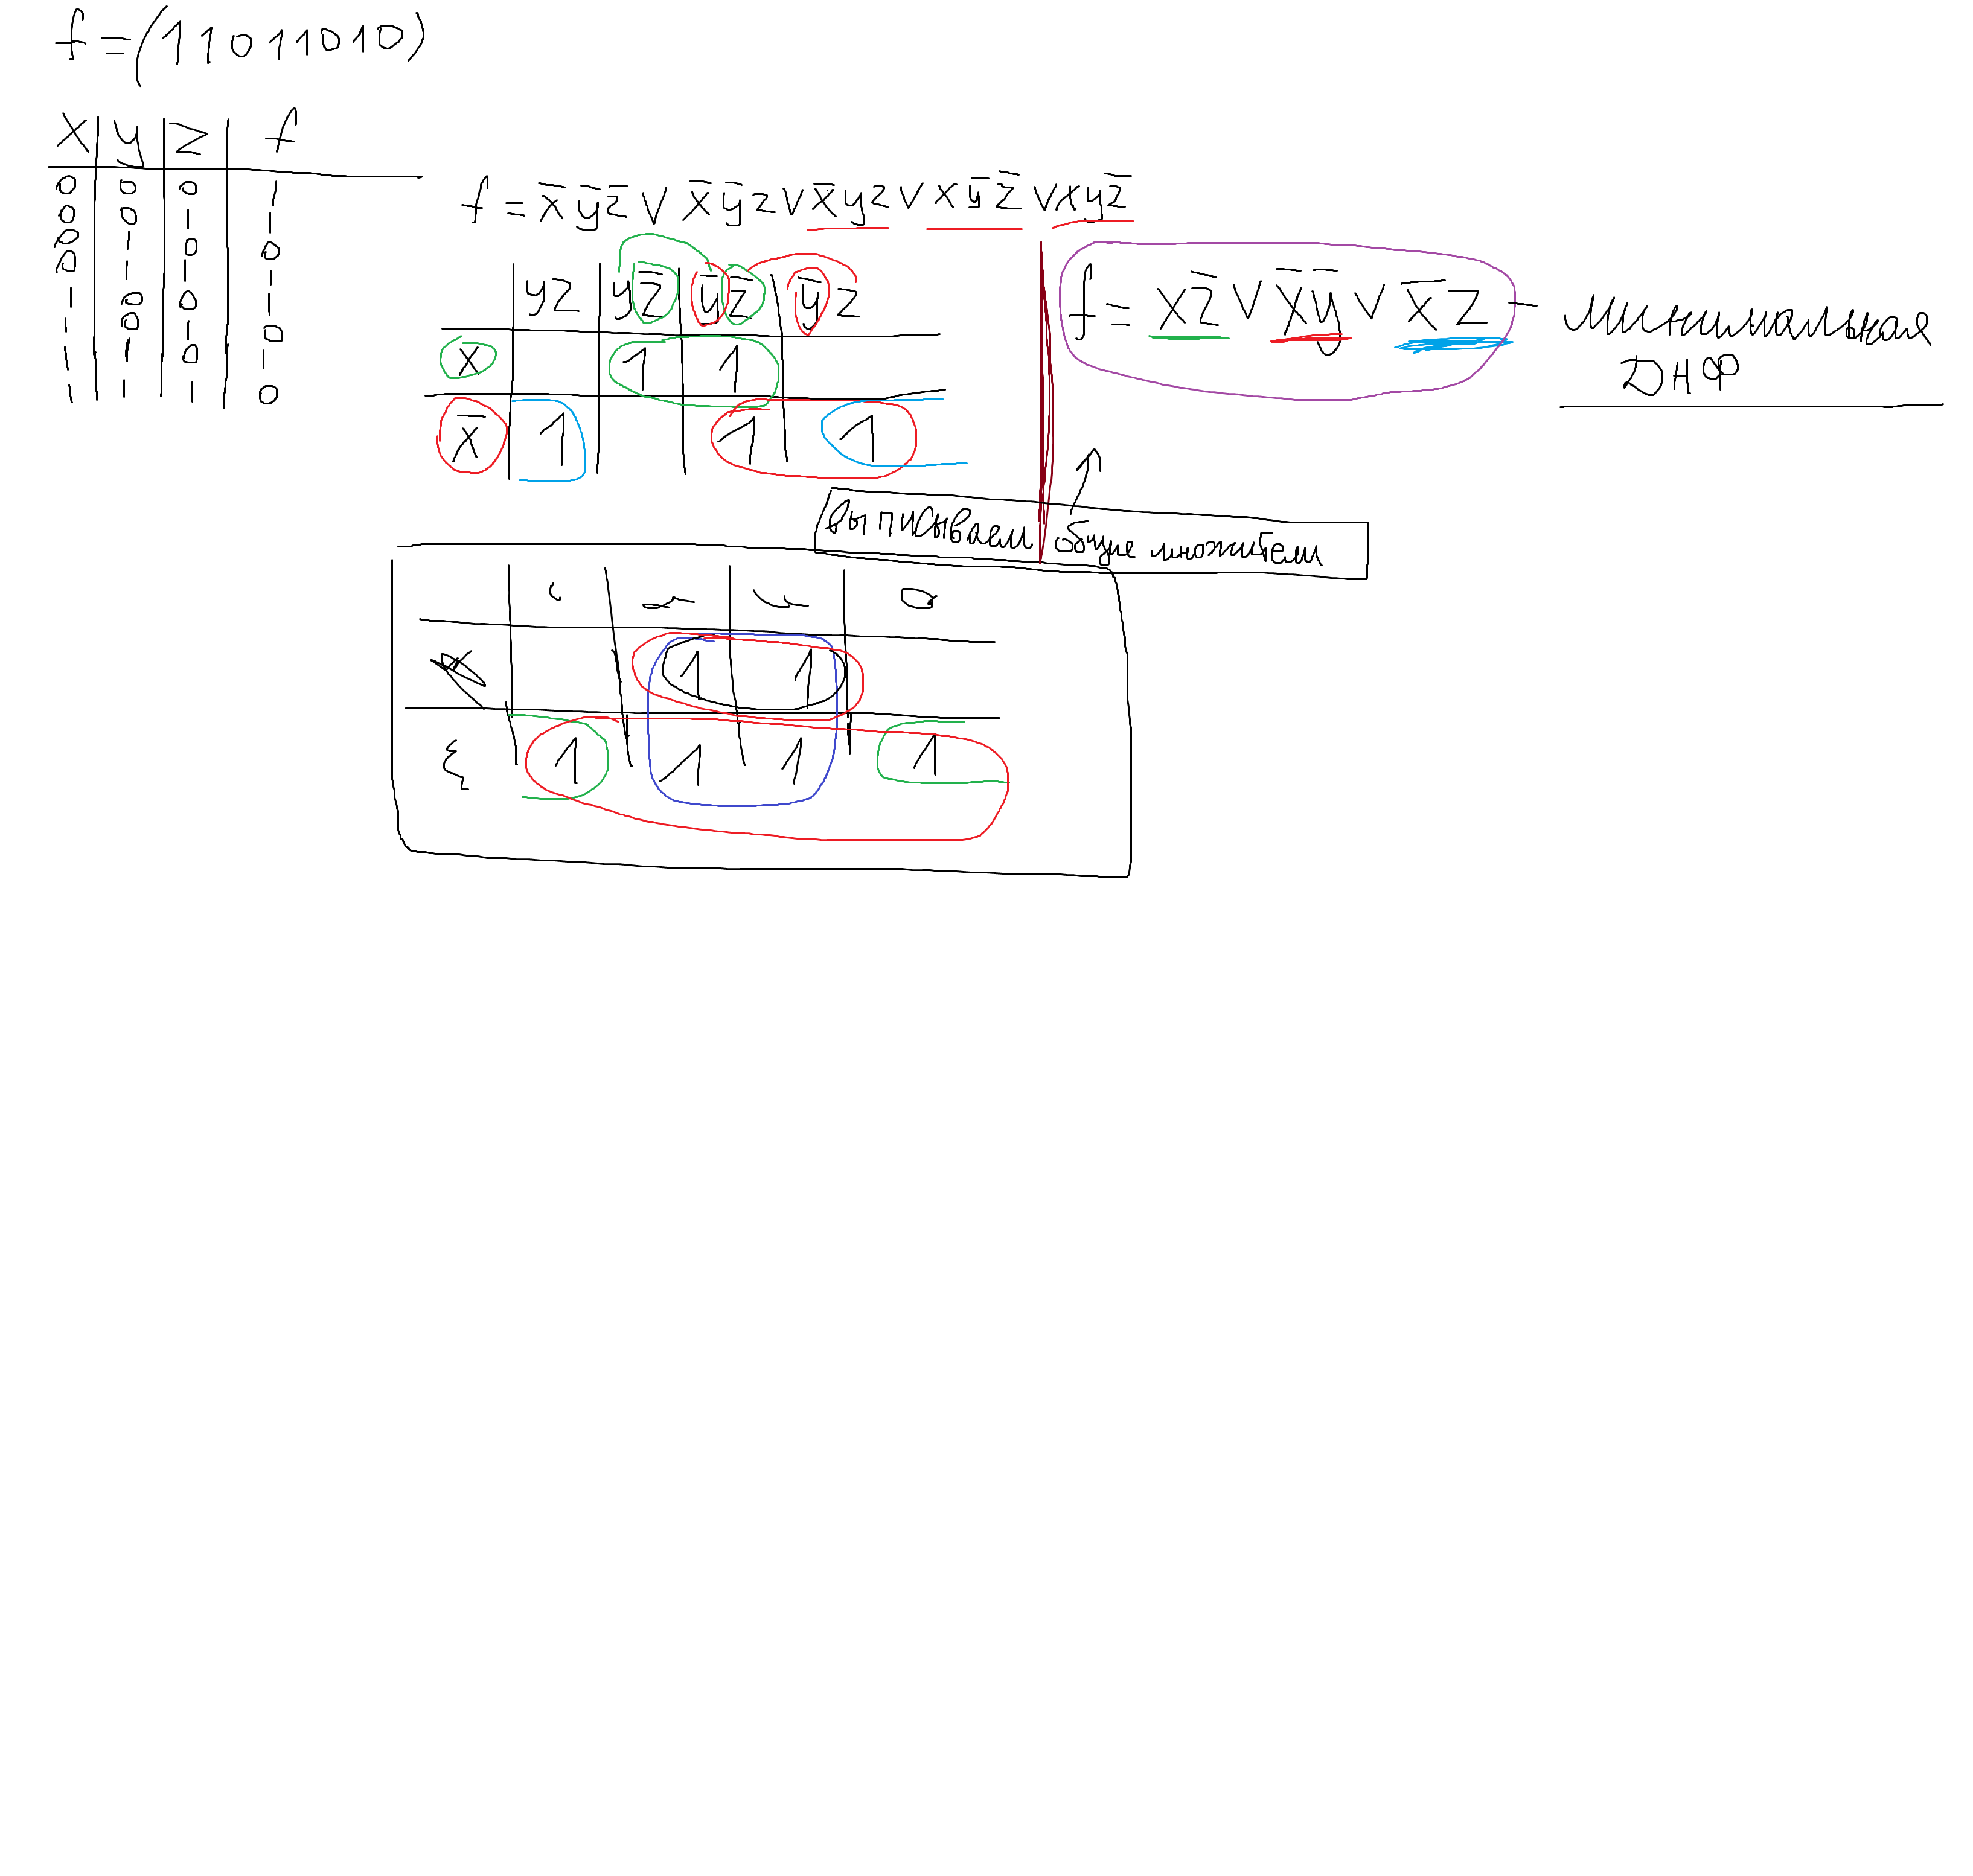 f = (11011010)
x y z f
0 0 0 1
0 0 1 1
0 1 0 0
0 1 1 1
1 0 0 1
1 0 1 0
1 1 0 1
1 1 1 0
f = x̅ y̅ z̅ ∨ x̅ y̅ z ∨ x̅ y z ∨ x y̅ z̅ ∨ x y z̅
yz yz̅ y̅z̅ y̅z
x 1 1
x̅ 1 1 1
f = xz̅ ∨ x̅y̅ ∨ x̅z - минимальная
ДНФ
выписываем общие множители
1 1
1 1 1 1